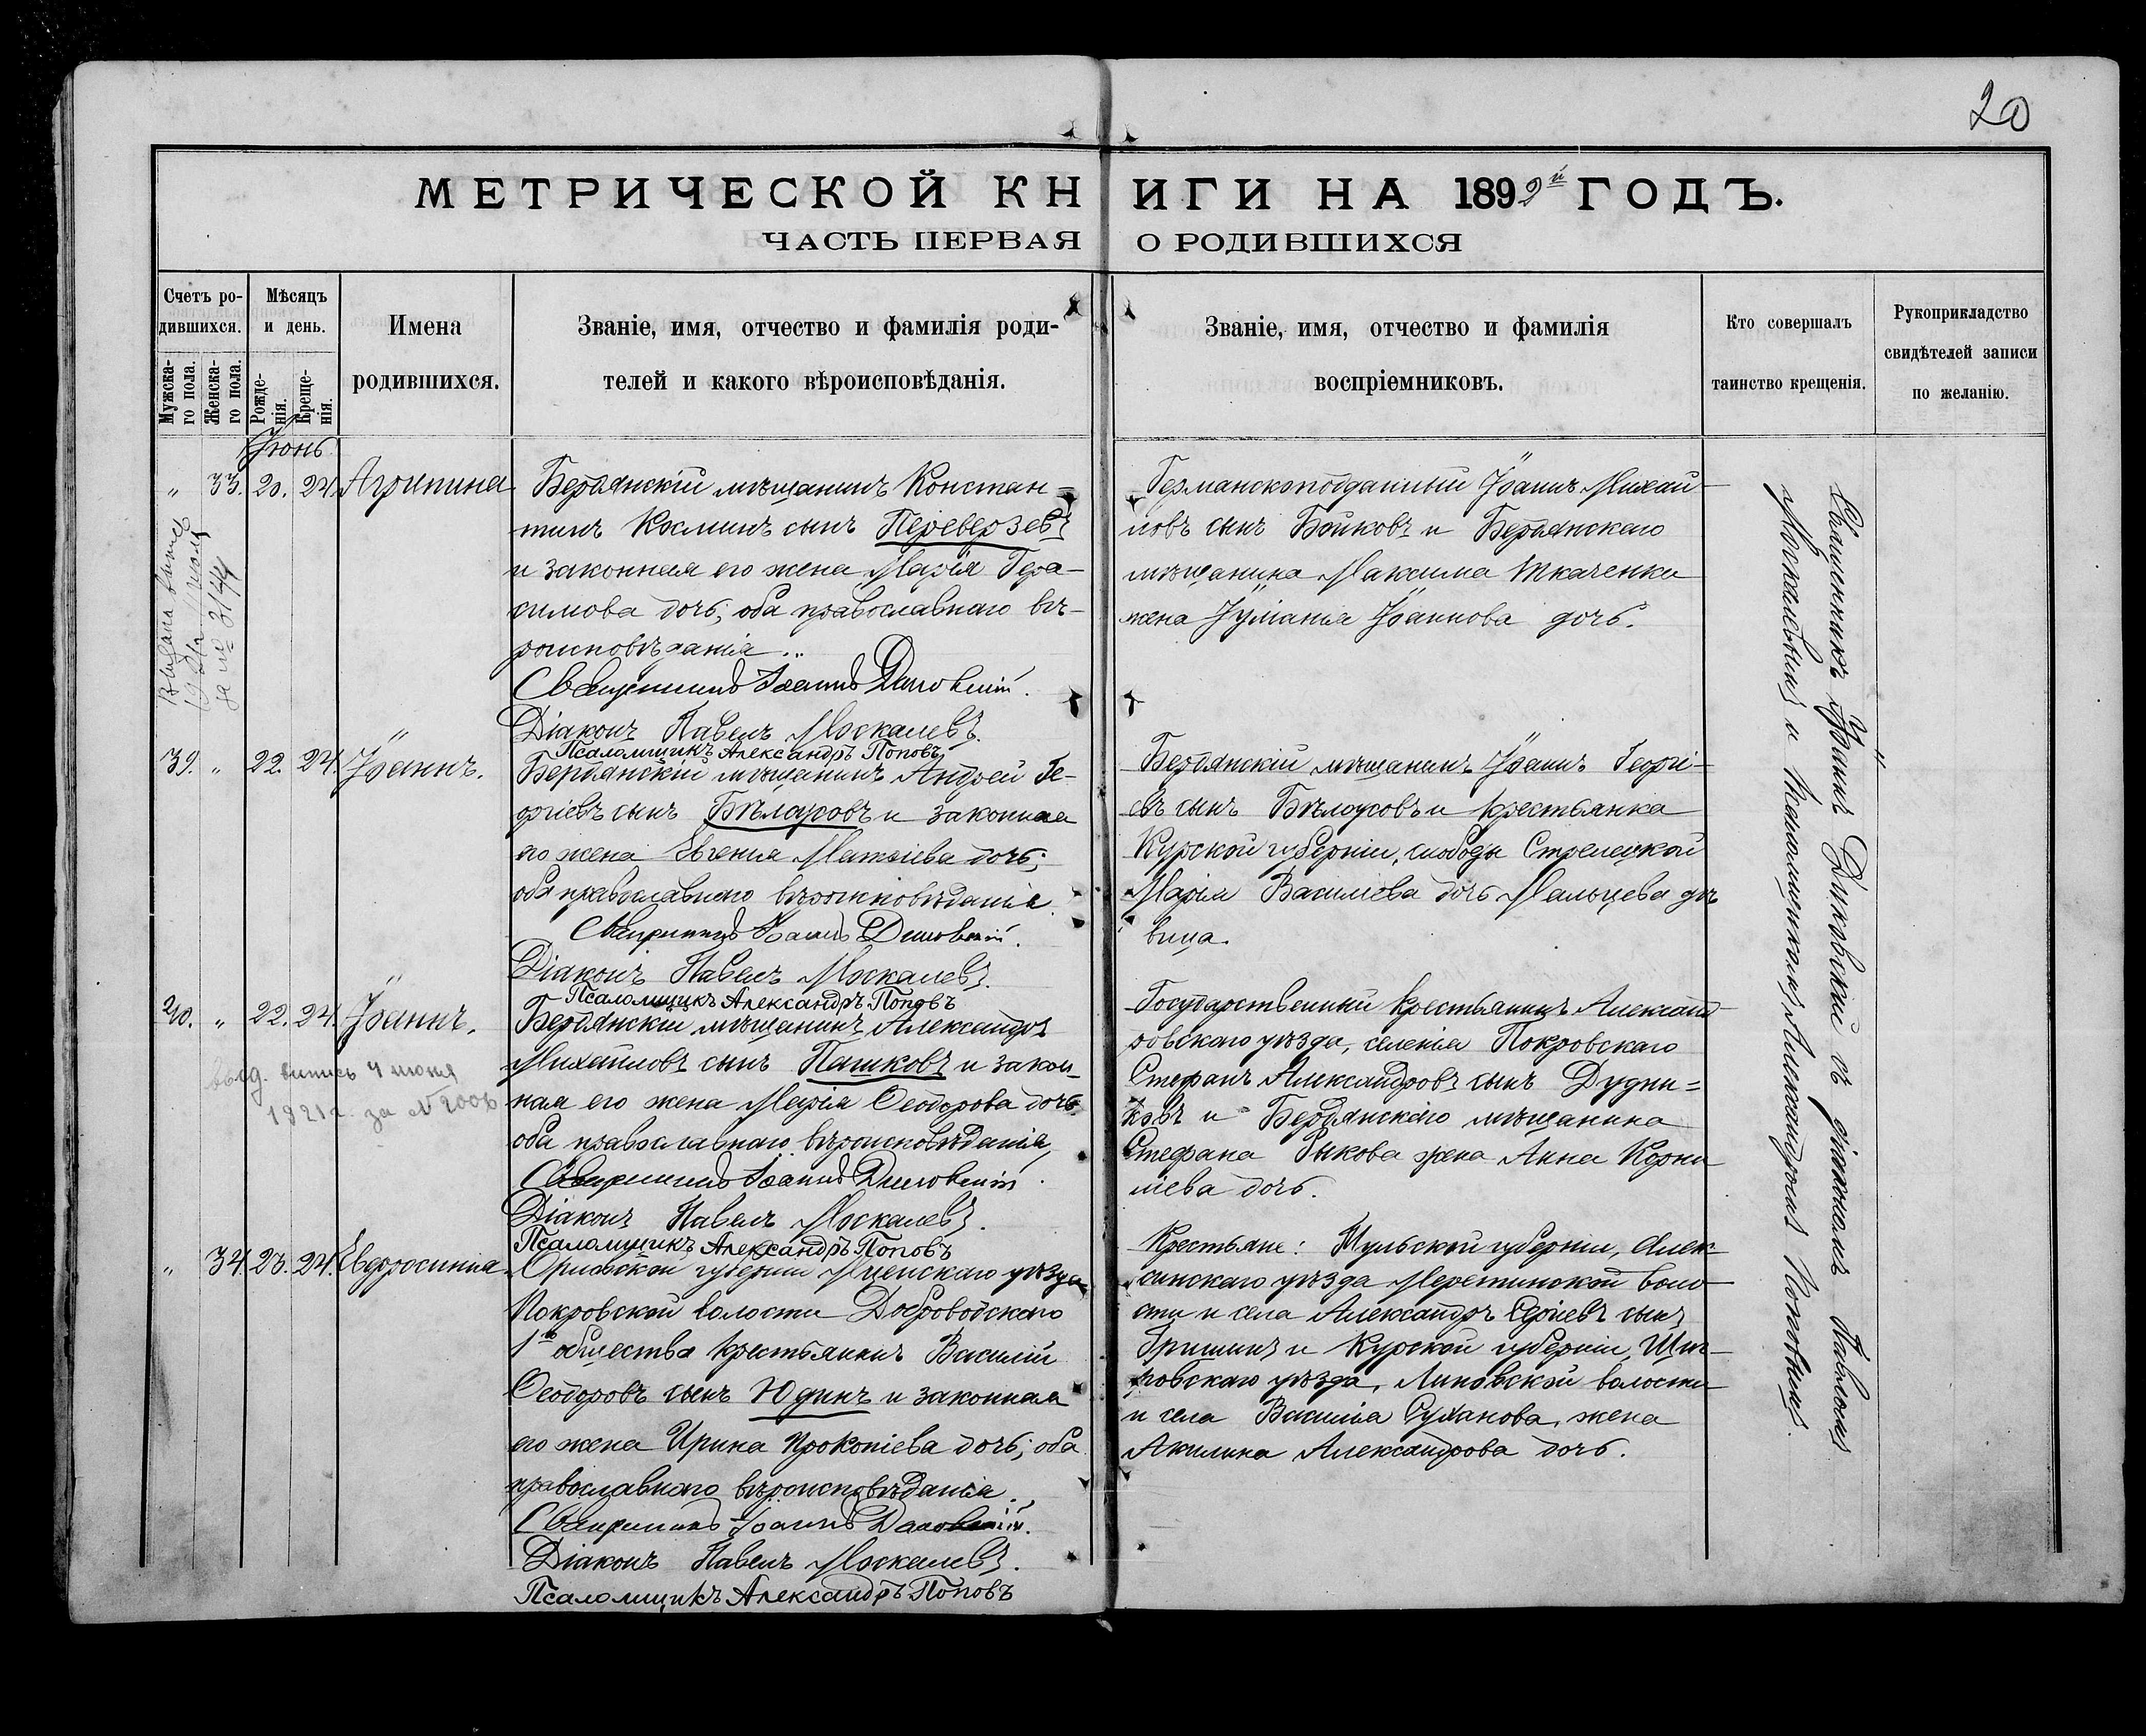 20
МЕТРИЧЕСКОЙ КНИГИ НА 1892й ГОДЪ.
ЧАСТЬ ПЕРВАЯ О РОДИВШИХСЯ
Счетъ родившихся.
Мужскаго пола.
Женскаго пола.
Мѣсяцъ и день.
Рожденія.
Крещенія.
Имена
родившихся.
Званіе, имя, отчество и фамилія роди-
телей и какого вѣроисповѣданія.
Званіе, имя, отчество и фамилія
воспріемниковъ.
Кто совершалъ
таинство крещенія.
Рукоприкладство
свидѣтелей записи
по желанію.
Іюнь
" 33. 20. 24. Агрипина
Бердянскій мѣщанинъ Констан=
тинъ Косминъ сынъ Переверзевъ
и законная его жена Марія Гера-
симова дочь; оба православнаго вѣ-
роисповѣданія
Священникъ Іоаннъ
Діаконъ Павелъ Москалевъ.
Псаломщикъ Александръ Поповъ
Германскоподданный Іоаннъ Михай-
ловъ сынъ Бойковъ и Бердянскаго
мѣщанина Максима Ткаченки
жена Іуліанія Іоаннова дочь.
39. " 22. 24. Іоаннъ.
Бердянскій мѣщанинъ Андрей Ге-
оргіевъ сынъ Бѣлоусовъ и законная
его жена Евгенія дочь;
оба православнаго вѣроисповѣданія
Священникъ Іоаннъ
Діаконъ Павелъ Москалевъ.
Псаломщикъ Александръ Поповъ
Бердянскій мѣщанинъ Іоаннъ Георгі-
евъ сынъ Бѣлоусовъ и крестьянка
Курской губерніи, слободы Стрелецкой
Марія Василіева дочь Мальцева дѣ
вица.
40. " 22. 24. Іоаннъ.
выд. выпись 4 июня
1921 г. за №
Бердянскій мѣщанинъ Александръ
Михайловъ сынъ Пашковъ и закон-
ная его жена Марія Ѳеодорова дочь
оба православнаго вѣроисповѣданія,
Священникъ Іоаннъ
Діаконъ Павелъ Москалевъ.
Псаломщикъ Александръ Поповъ
Государственный крестьянинъ Александ-
ровскаго уѣзда, селенія Покровскаго
Стефанъ Александровъ сынъ Дудни=
ковъ и Бердянскаго мѣщанина
Стефана Быкова жена Анна Корни
ліева дочь.
" 34. 23. 24. Евфросинія
Орловской губерніи Мценскаго уѣзда
Покровской волости Доброводскаго
1го общества крестьянинъ Василій
Ѳеодоровъ сынъ Юдинъ и законная
его жена Ирина Прокопіева дочь; оба
православнаго вѣроисповѣданія.
Священникъ Іоаннъ
Діаконъ Павелъ Москалевъ.
Псаломщикъ Александръ Поповъ
Крестьяне: Тульской губерніи, Алек-
синскаго уѣзда воло-
сти и села Александръ Сергіевъ сынъ
Гришинъ и Курской губерніи, Щиг-
ровскаго уѣзда, Липовской волости
и села Василія Суханова жена
Акилина Александрова дочь.
Священникъ Іоаннъ съ діакономъ Павломъ
Москалевымъ и псаломщикомъ Александромъ Поповымъ.